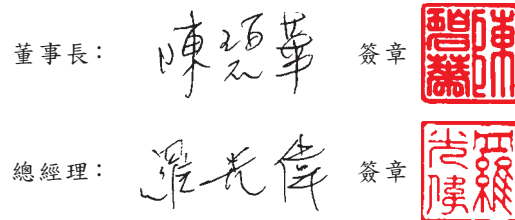 董事長： 陳碧華 簽章 陳碧華
總經理： 羅光偉 簽章 羅光偉